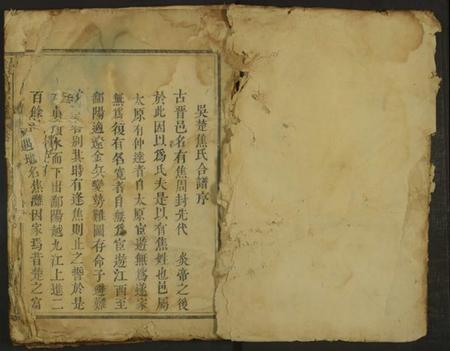 吳楚焦氏合譜序
古晋邑名有焦周封先代　炎帝之後
於此因以爲氏夫是以有焦姓也邑屬
太原有仲達者自太原宦遊無爲遂家
無爲復有名寬者自無爲宦遊江西至
鄱陽適遼金兵變勢難圖存命子
名別其時有逢焦則止之誓於是
順水而下出鄱陽越九江上進二
百餘 過地名焦灘因家焉昔楚之富